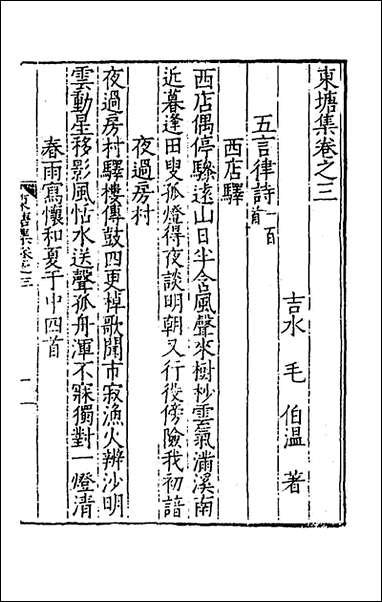 東塘集卷之三
吉水 毛伯溫 著
五言律詩一百首
西店驛
西店偶停驂遠山日半含風聲來樹杪雲氣滿溪南
近暮逢田叟孤燈得夜談明朝又行役傍險我初諳
夜過房村
夜過房村驛樓傳鼓四更棹歌聞市寂漁火辨沙明
雲動星移影風恬水送聲孤舟渾不寐獨對一燈清
春雨寫懷和夏于中四首
東塘集卷之三
一